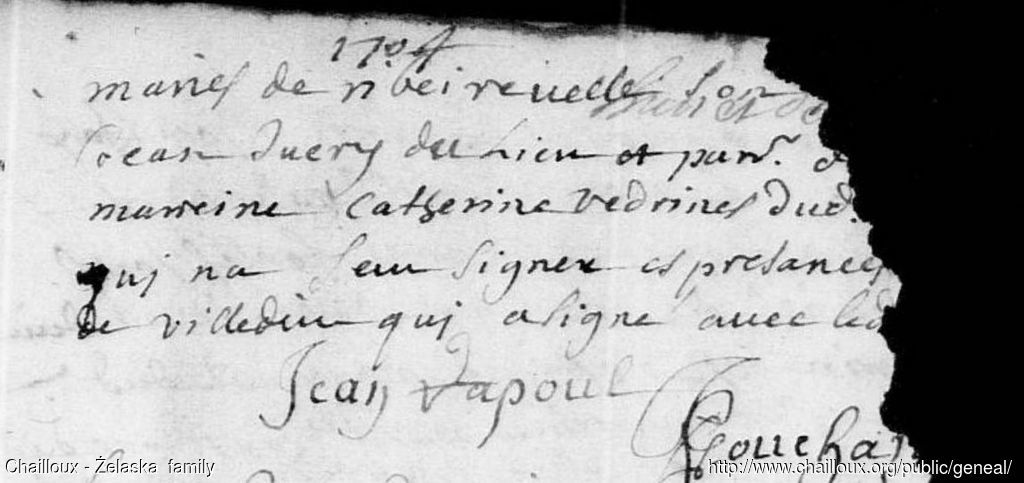 1704
maries de ribeirevelle son
jean duery du lieu et parr.
marreine Catherine vedrines dud.
quj na seu signer es presances
de villedieu quj a signé avec led
Jean vapoul
Bouchar
Chailloux - Żelaska family
http://www.chailloux.org/public/geneal/